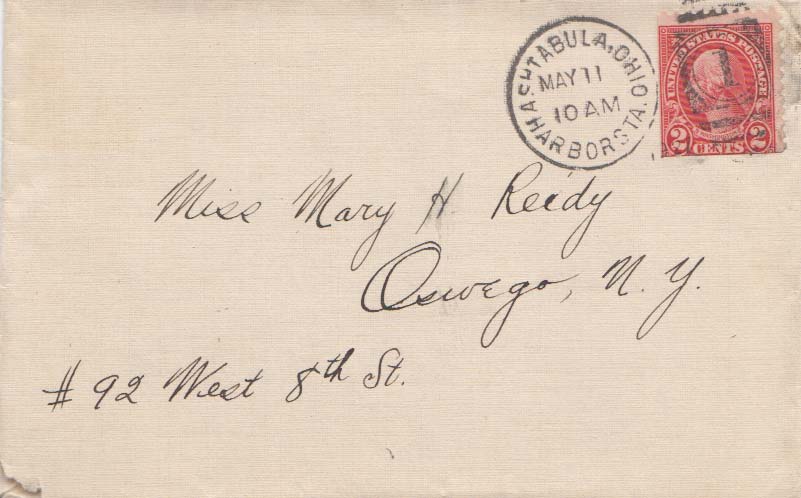 ASHTABULA, OHIO
MAY 11
10 AM
HARBOR STA.
1
UNITED STATES POSTAGE
2 CENTS 2
Miss Mary H. Reidy
Oswego, N. Y.
# 92 West 8th St.